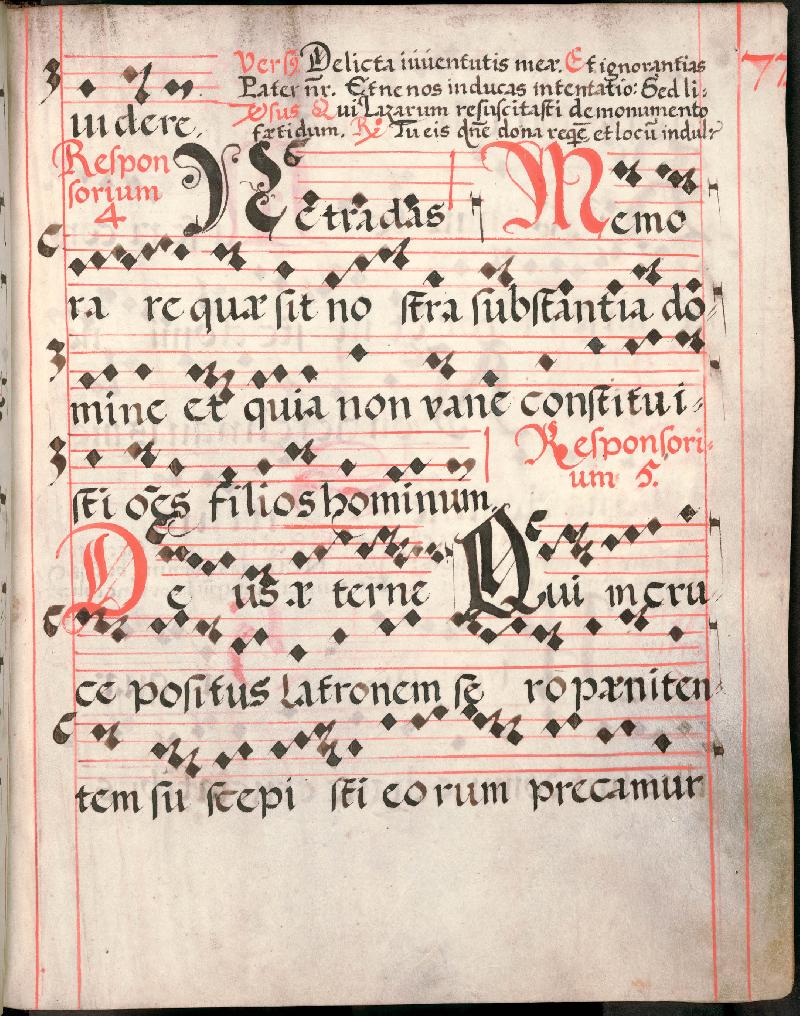 77
Versꝰ. Delicta iuuentutis meæ. Et ignorantias
Pater nr̃. Et ne nos inducas in tentatio: Sed li-
V̄sus Qui Lazarum resuscitasti de monumento
uidere. fætidum. R̃ Tu eis dñe dona reqẽ et locũ indul-
Respon
sorium
4
Ne tradas Memo
ra re quæ sit no stra substantia do-
mine et quia non vane constitui-
sti oẽs filios hominum.
Responsori-
um 5.
De us æ terne Qui in cru
ce positus Latronem se ro pæniten-
tem su scepi sti eorum precamur